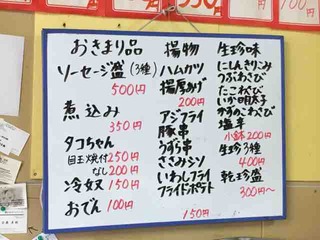 おきまり品
ソーセージ盛(3種)
500円
煮込み
350円
タコちゃん
目玉焼付250円
なし200円
冷奴 150円
おでん 100円
揚物
ハムカツ
揚厚あげ
200円
アジフライ
豚串
うずら串
ささみシソ
いわしフライ
フライドポテト
150円
生珍味
にしんきりこみ
つぶわさび
たこわさび
いか明太子
かずのこわさび
塩辛
小鉢200円
生珍3種
400円
乾珍盛
300円〜